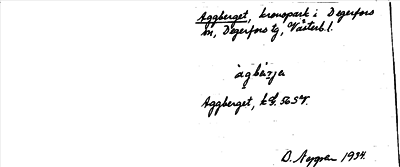 Aggberget, kronopark i Degerfors
sn, Degerfors tg, Västerb. l.
àgbärja
Aggberget, k
D. Nygren 1934.